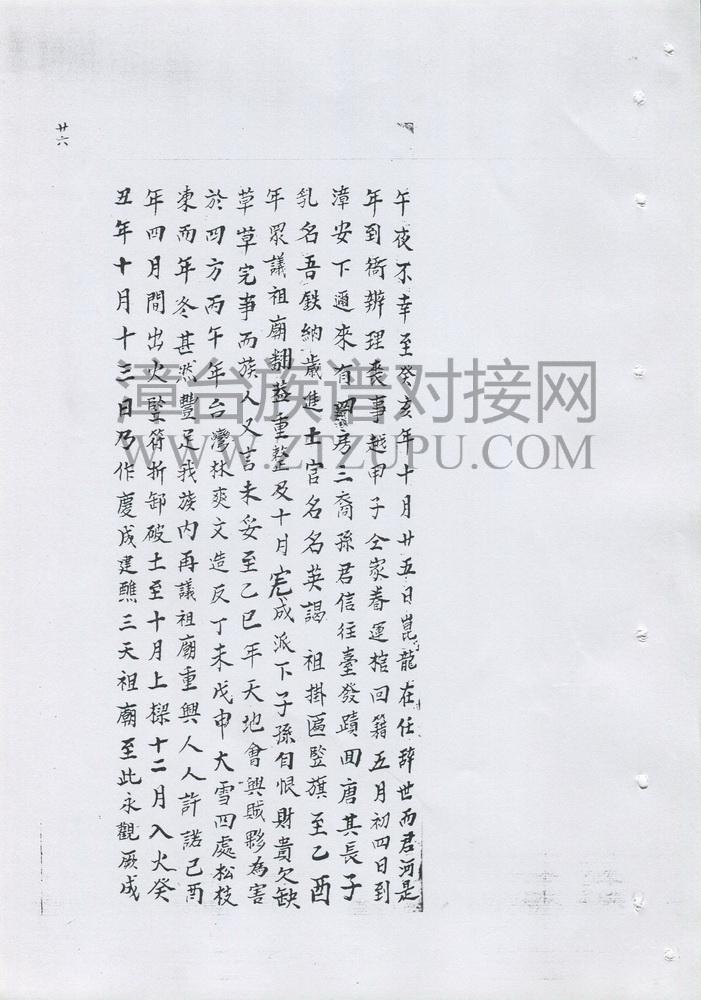 午夜不幸至癸亥年十月廿五日崑龍在任辞世而君河是
年到衙辦理喪事越甲子仝家眷運棺回籍五月初四日到
漳安下遞來有四房三裔孫君信往臺發蹟回唐其長子
乳名吾鉄納歲進士官名名英謁 祖掛匾竪旗至乙酉
年眾議祖廟翻蓋重整及十月完成派下子孫自恨財貴欠缺
草草完事而族人又言未妥至乙巳年天地會興賊夥為害
於四方丙午年台灣林爽文造反丁未戊申大雪四處松枝
凍而年冬甚然豐足我族内再議祖廟重興人人許諾己酉
年四月間出火竪符折卸破土至十月上樑十二月入火癸
丑年十月十三日乃作慶成建醮三天祖廟至此永觀厥成
廿六
漳台族谱对接网
WWW.ZTZUPU.COM